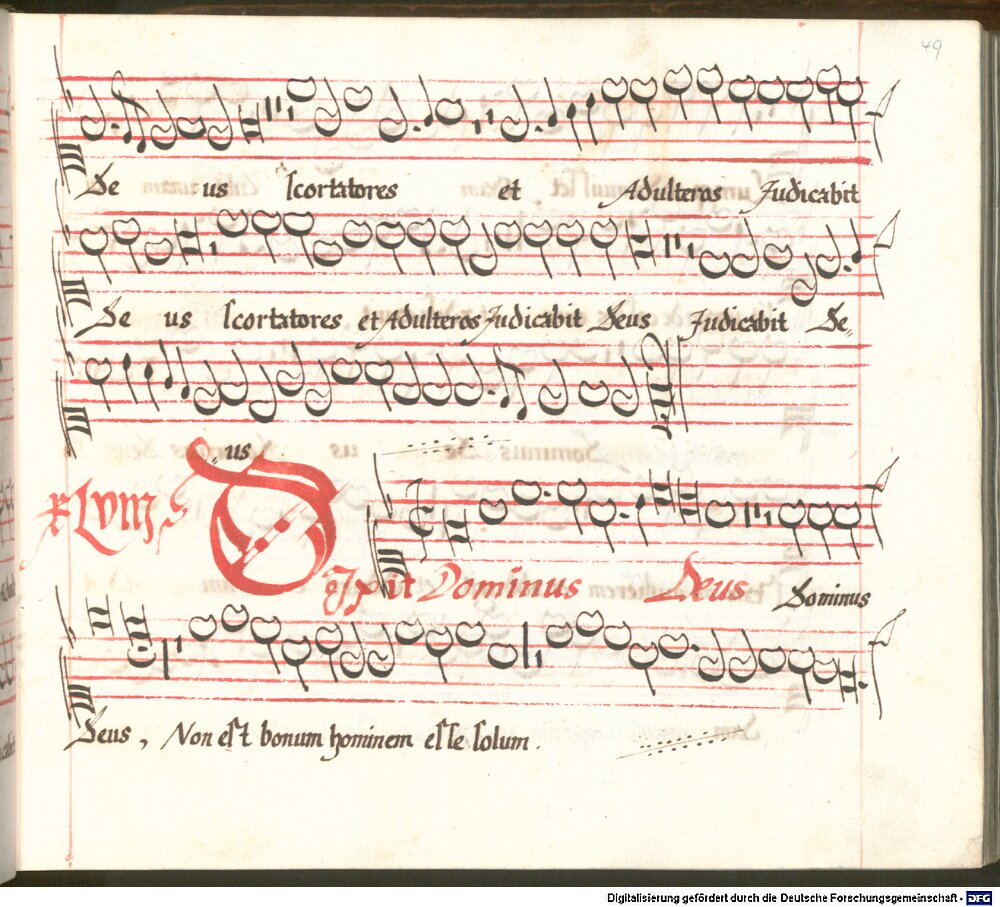 49
De us scortatores et Adulteros Judicabit
De us scortatores et Adulteros Judicabit Deus Judicabit De-
us
xLVIII
Dixit Dominus Deus Dominus
Deus, Non est bonum hominem esse solum.
Digitalisierung gefördert durch die Deutsche Forschungsgemeinschaft - DFG